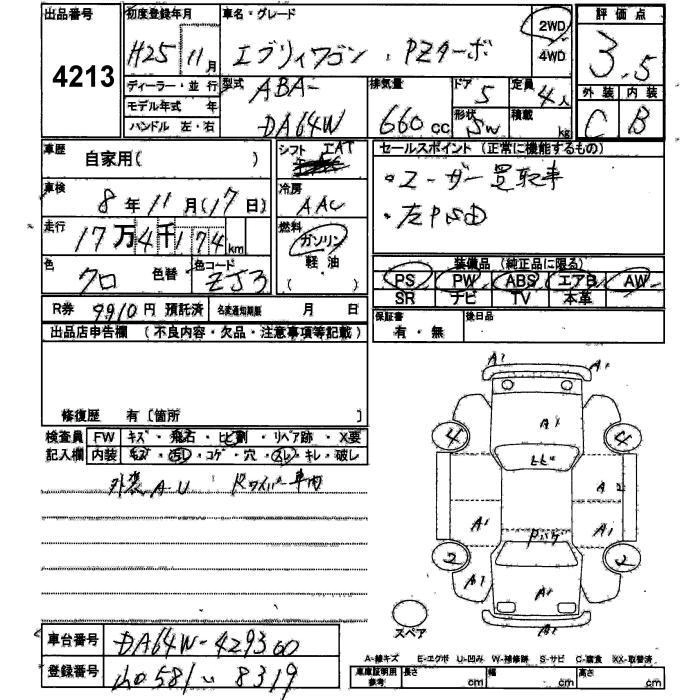 出品番号
4213
初度登録年月
H25 11月
車名・グレード
エブリィワゴン PZターボ
2WD
4WD
評価点
3.5
外装 内装
C B
ディーラー・並行
モデル年式 年
ハンドル 左・右
型式
ABA-
DA64W
排気量
660cc
ドア
5
形状
5W
定員
4人
積載
kg
車歴
自家用( )
シフト
IAT
車検
8年11月(17日)
冷房
AAC
走行
17万4千174km
燃料
ガソリン
軽油
( )
色
クロ
色替
色コード
ZJ3
R券 9910円 預託済
名変通知期限 月 日
セールスポイント (正常に機能するもの)
・ユーザー買取車
・左PSD
装備品 (純正品に限る)
PS PW ABS エアB AW
SR ナビ TV 本革
保証書
有・無
後日品
出品店申告欄 (不良内容・欠品・注意事項等記載)
修復歴 有〔箇所 〕
検査員 FW キズ・飛石・ヒビ割・リペア跡・X要
記入欄 内装 キズ・汚レ・コゲ・穴・スレ・キレ・破レ
外装A・U Rワイパー車内
A1
A1
A1
4
4
ヒビ
A2
A1
A1
Rバゲ
2
2
A1
A1
A1
A1
スペア
A-線キズ E-エクボ U-凹み W-補修跡 S-サビ C-腐食 XX-取替済
車台番号 DA64W-429360
登録番号 581 い 8319
車庫証明用
参考
長さ cm
幅 cm
高さ cm